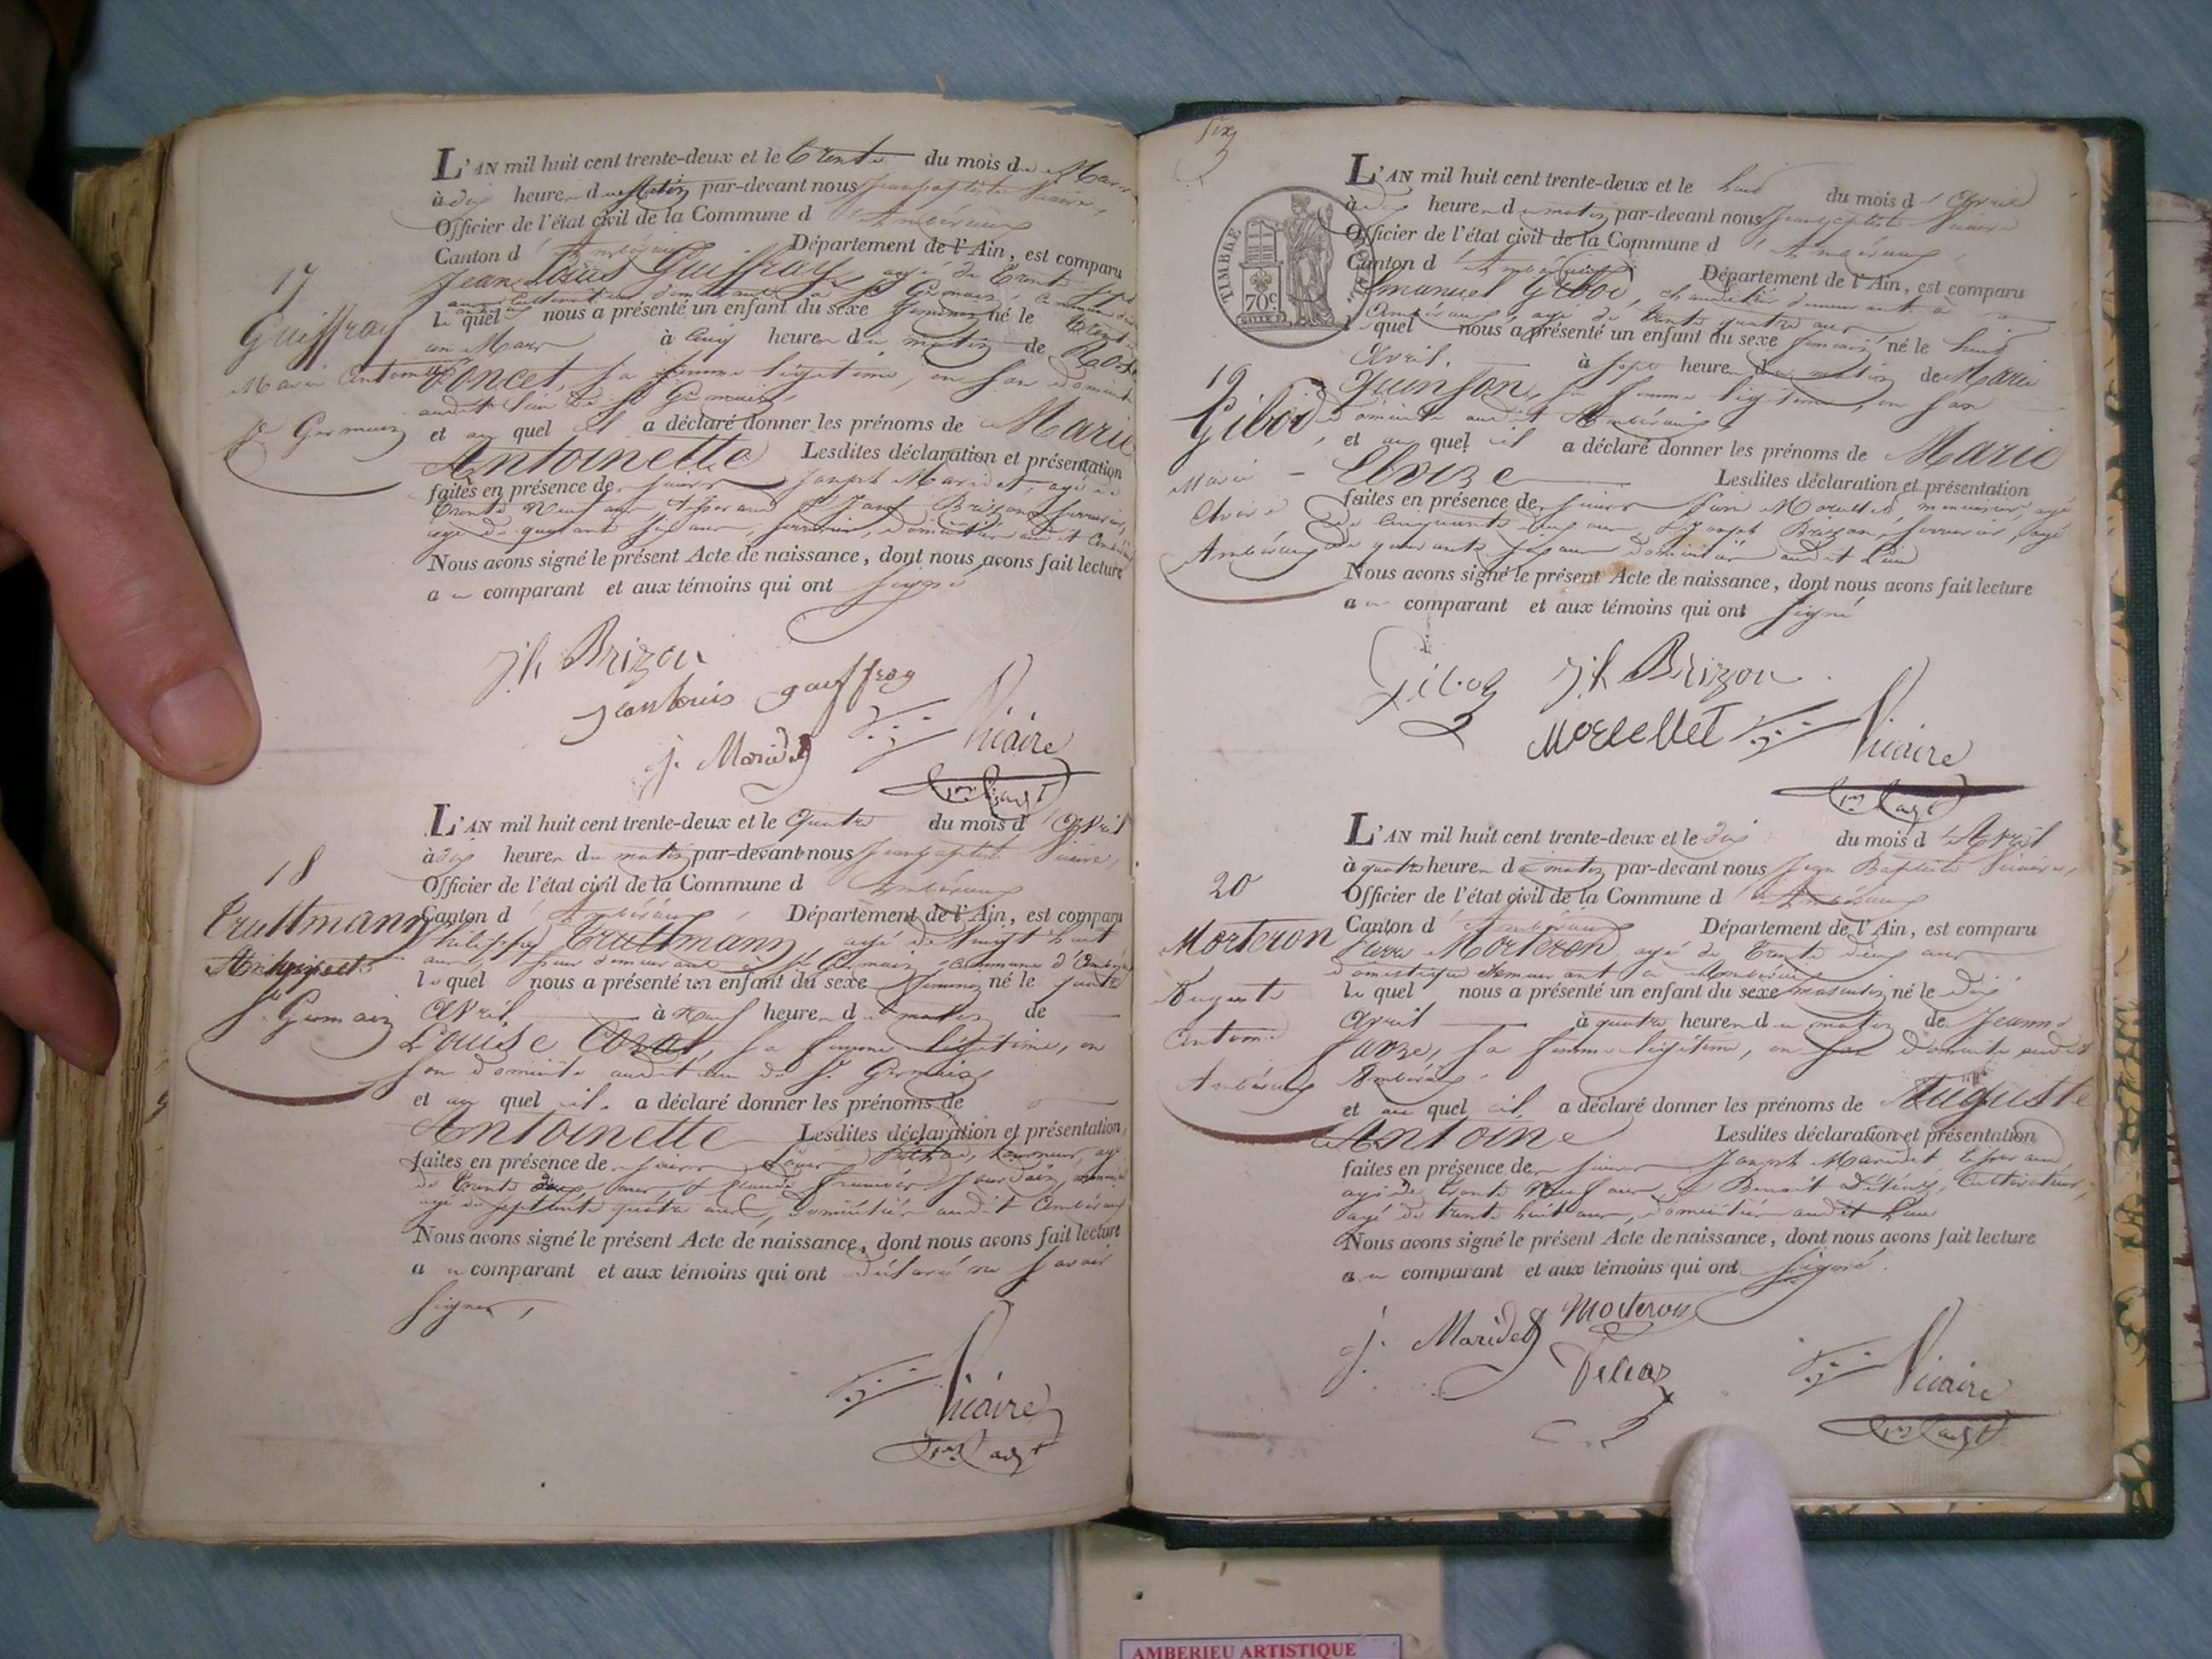 17
Guiffray
Marie Antoinette
St Germain
L'AN mil huit cent trente-deux et le trente du mois de Mars
à dix heures du matin par-devant nous Jean baptiste Vicaire,
Officier de l'état civil de la Commune d'Ambérieux
Canton d'Ambérieux Département de l'Ain, est comparu
Jean Louis Guiffray, agé de trente sept
ans cultivateur demeurant à St Germain, commune
le quel nous a présenté un enfant du sexe féminin né le trente
un Mars à cinq heures du matin de
Poncet, sa femme légitime, en son domicile
audit lieu de St Germain,
et au quel il a déclaré donner les prénoms de Marie
Antoinette Lesdites déclaration et présentation
faites en présence de sieurs Joseph Maridet, agé de
trente neuf ans, & Joseph Brizon, serrurier,
agé de quarante six ans, domiciliés audit
Nous avons signé le présent Acte de naissance, dont nous avons fait lecture
au comparant et aux témoins qui ont signé
Jh Brizon
jean louis gueffray
j. Maridet
Vicaire
18
Truttmann
Antoinette
St Germain
L'AN mil huit cent trente-deux et le quatre du mois d'Avril
à dix heures du matin par-devant nous Jean baptiste Vicaire,
Officier de l'état civil de la Commune d'Ambérieux
Canton d'Ambérieux, Département de l'Ain, est comparu
Philippe Truttmann agé de vingt huit
ans, demeurant à St Germain, commune d'Ambérieux
le quel nous a présenté un enfant du sexe féminin né le quatre
Avril à neuf heures du matin de
Louise Cozat, sa femme légitime, en
son domicile audit lieu de St Germain
et au quel il a déclaré donner les prénoms de
Antoinette Lesdites déclaration et présentation
faites en présence de sieurs Louis tourneur, agé
de trente deux ans & Claude Jourdain,
agé de septente quatre ans, domiciliés audit Ambérieux
Nous avons signé le présent Acte de naissance, dont nous avons fait lecture
au comparant et aux témoins qui ont déclaré ne savoir
signer,
Vicaire
Six
TIMBRE ROYAL
70c
19
Gibod
Marie
Elvize
Ambérieux
L'AN mil huit cent trente-deux et le huit du mois d'Avril
à dix heures du matin par-devant nous Jean baptiste Vicaire
Officier de l'état civil de la Commune d'Ambérieux,
Canton d'Ambérieux Département de l'Ain, est comparu
Emanuel Gibod, demeurant à
Ambérieux, agé de trente quatre ans
le quel nous a présenté un enfant du sexe féminin né le huit
Avril, à sept heures du matin de Marie
Juinson, sa femme légitime, en son
domicile audit Ambérieux,
et au quel il a déclaré donner les prénoms de Marie
Elvize Lesdites déclaration et présentation
faites en présence de sieurs menuisier, agé
de cinquante deux ans, & Joseph Brizon, serrurier, agé
de quarante six ans domiciliés audit lieu
Nous avons signé le présent Acte de naissance, dont nous avons fait lecture
au comparant et aux témoins qui ont signé
Gibod Jh Brizon
Morellet
Vicaire
20
Morteron
Auguste
Antoine
Ambérieux
L'AN mil huit cent trente-deux et le dix du mois d'Avril
à quatre heures du matin par-devant nous Jean Baptiste Vicaire,
Officier de l'état civil de la Commune d'Ambérieux
Canton d'Ambérieux Département de l'Ain, est comparu
Pierre Morteron agé de trente deux ans
domestique demeurant à Ambérieux
le quel nous a présenté un enfant du sexe masculin né le dix
Avril à quatre heures du matin de Jeanne
Janze, sa femme légitime, en son domicile audit
Ambérieux.
et au quel il a déclaré donner les prénoms de Auguste
Antoine Lesdites déclaration et présentation
faites en présence de sieurs Joseph Maridet
agé de trente neuf ans, & Benoit cultivateur,
agé de trente huit ans, domiciliés audit lieu
Nous avons signé le présent Acte de naissance, dont nous avons fait lecture
au comparant et aux témoins qui ont signé.
j. Maridet Morteron
Vicaire
AMBERIEU ARTISTIQUE